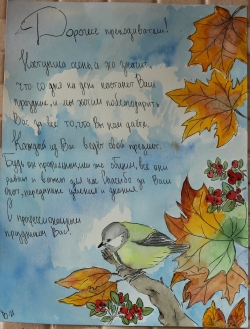 Дорогие преподаватели!
Наступила осень, а это значит,
что со дня на день настанет Ваш
праздник, и мы хотим поблагодарить
Вас за все то, что Вы нам даёте.
Каждый из Вас ведёт свой предмет.
Будь он профильным или общим, все они
равны и важны для нас. Спасибо за Ваш
опыт, переданные умения и знания!
С
профессиональным
праздником Вас!